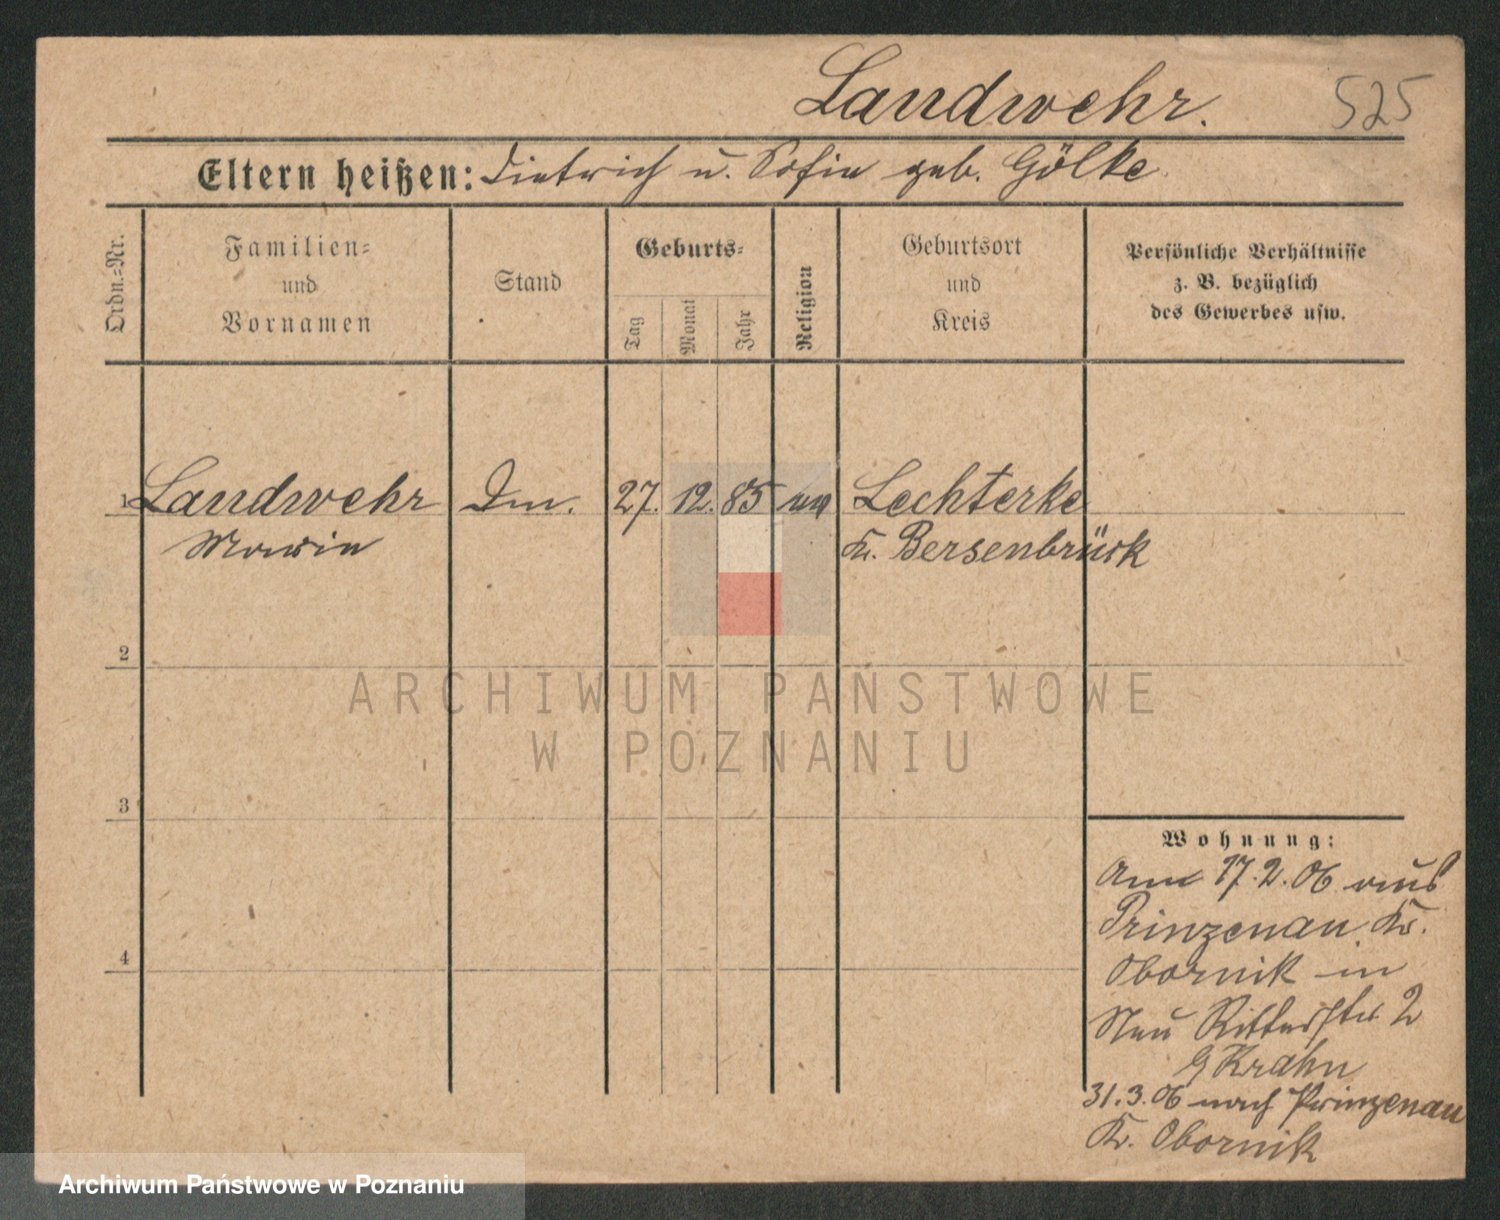 Landwehr. 525
Eltern heißen: Dietrich u. Sofie geb. Gölke
Ordn.=Nr.
Familien=
und
Vornamen
Stand
Geburts=
Tag
Monat
Jahr
Religion
Geburtsort
und
Kreis
Persönliche Verhältnisse
z. B. bezüglich
des Gewerbes usw.
1 Landwehr 27. 12. 85 Lechterke
Marie Kr. Bersenbrück
2
3
4
Wohnung:
17.2.06 aus
Prinzenau Kr.
Obornik in
Neu Ritterstr. 2
Krahn
31.3.06 nach Prinzenau
Kr. Obornik
ARCHIWUM PAŃSTWOWE
W POZNANIU
Archiwum Państwowe w Poznaniu